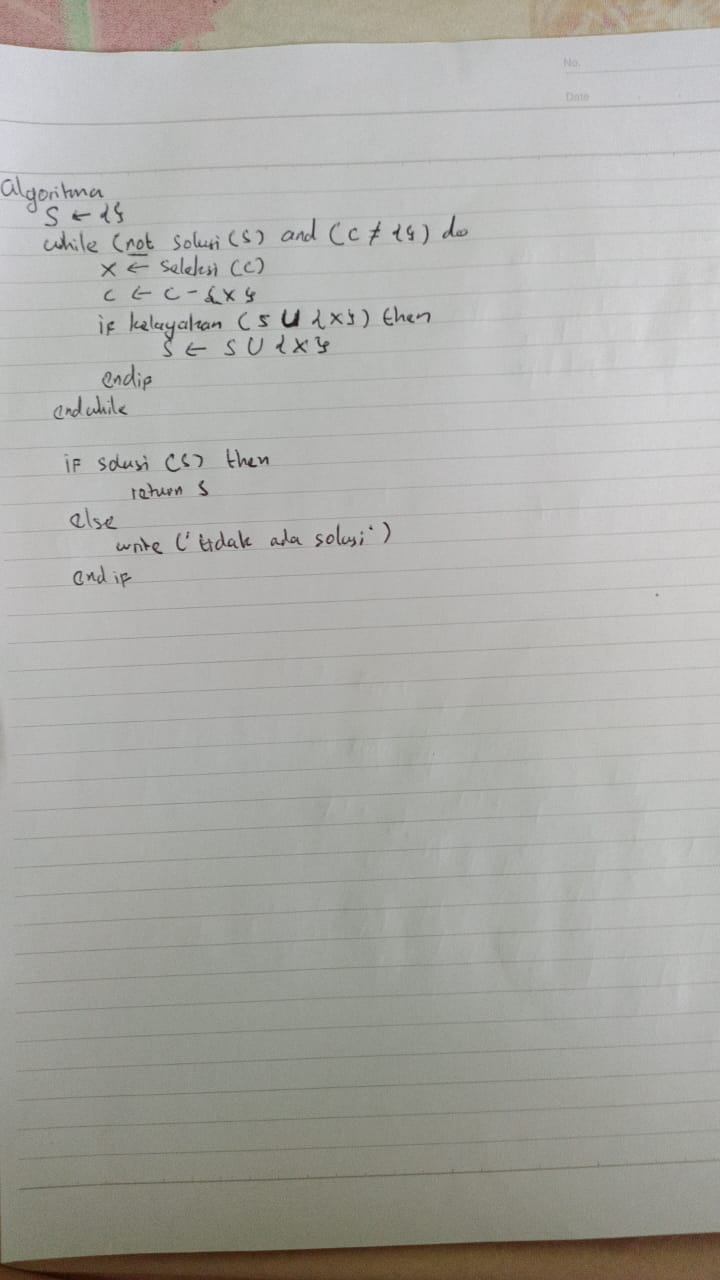 No.
Date
Algoritma
S ← {}
while (not solusi (S) and (C ≠ {}) do
x ← seleksi (C)
C ← C - {x}
if kelayakan (S ∪ {x}) then
S ← S ∪ {x}
endif
endwhile
if solusi (S) then
return S
else
write ('tidak ada solusi')
endif